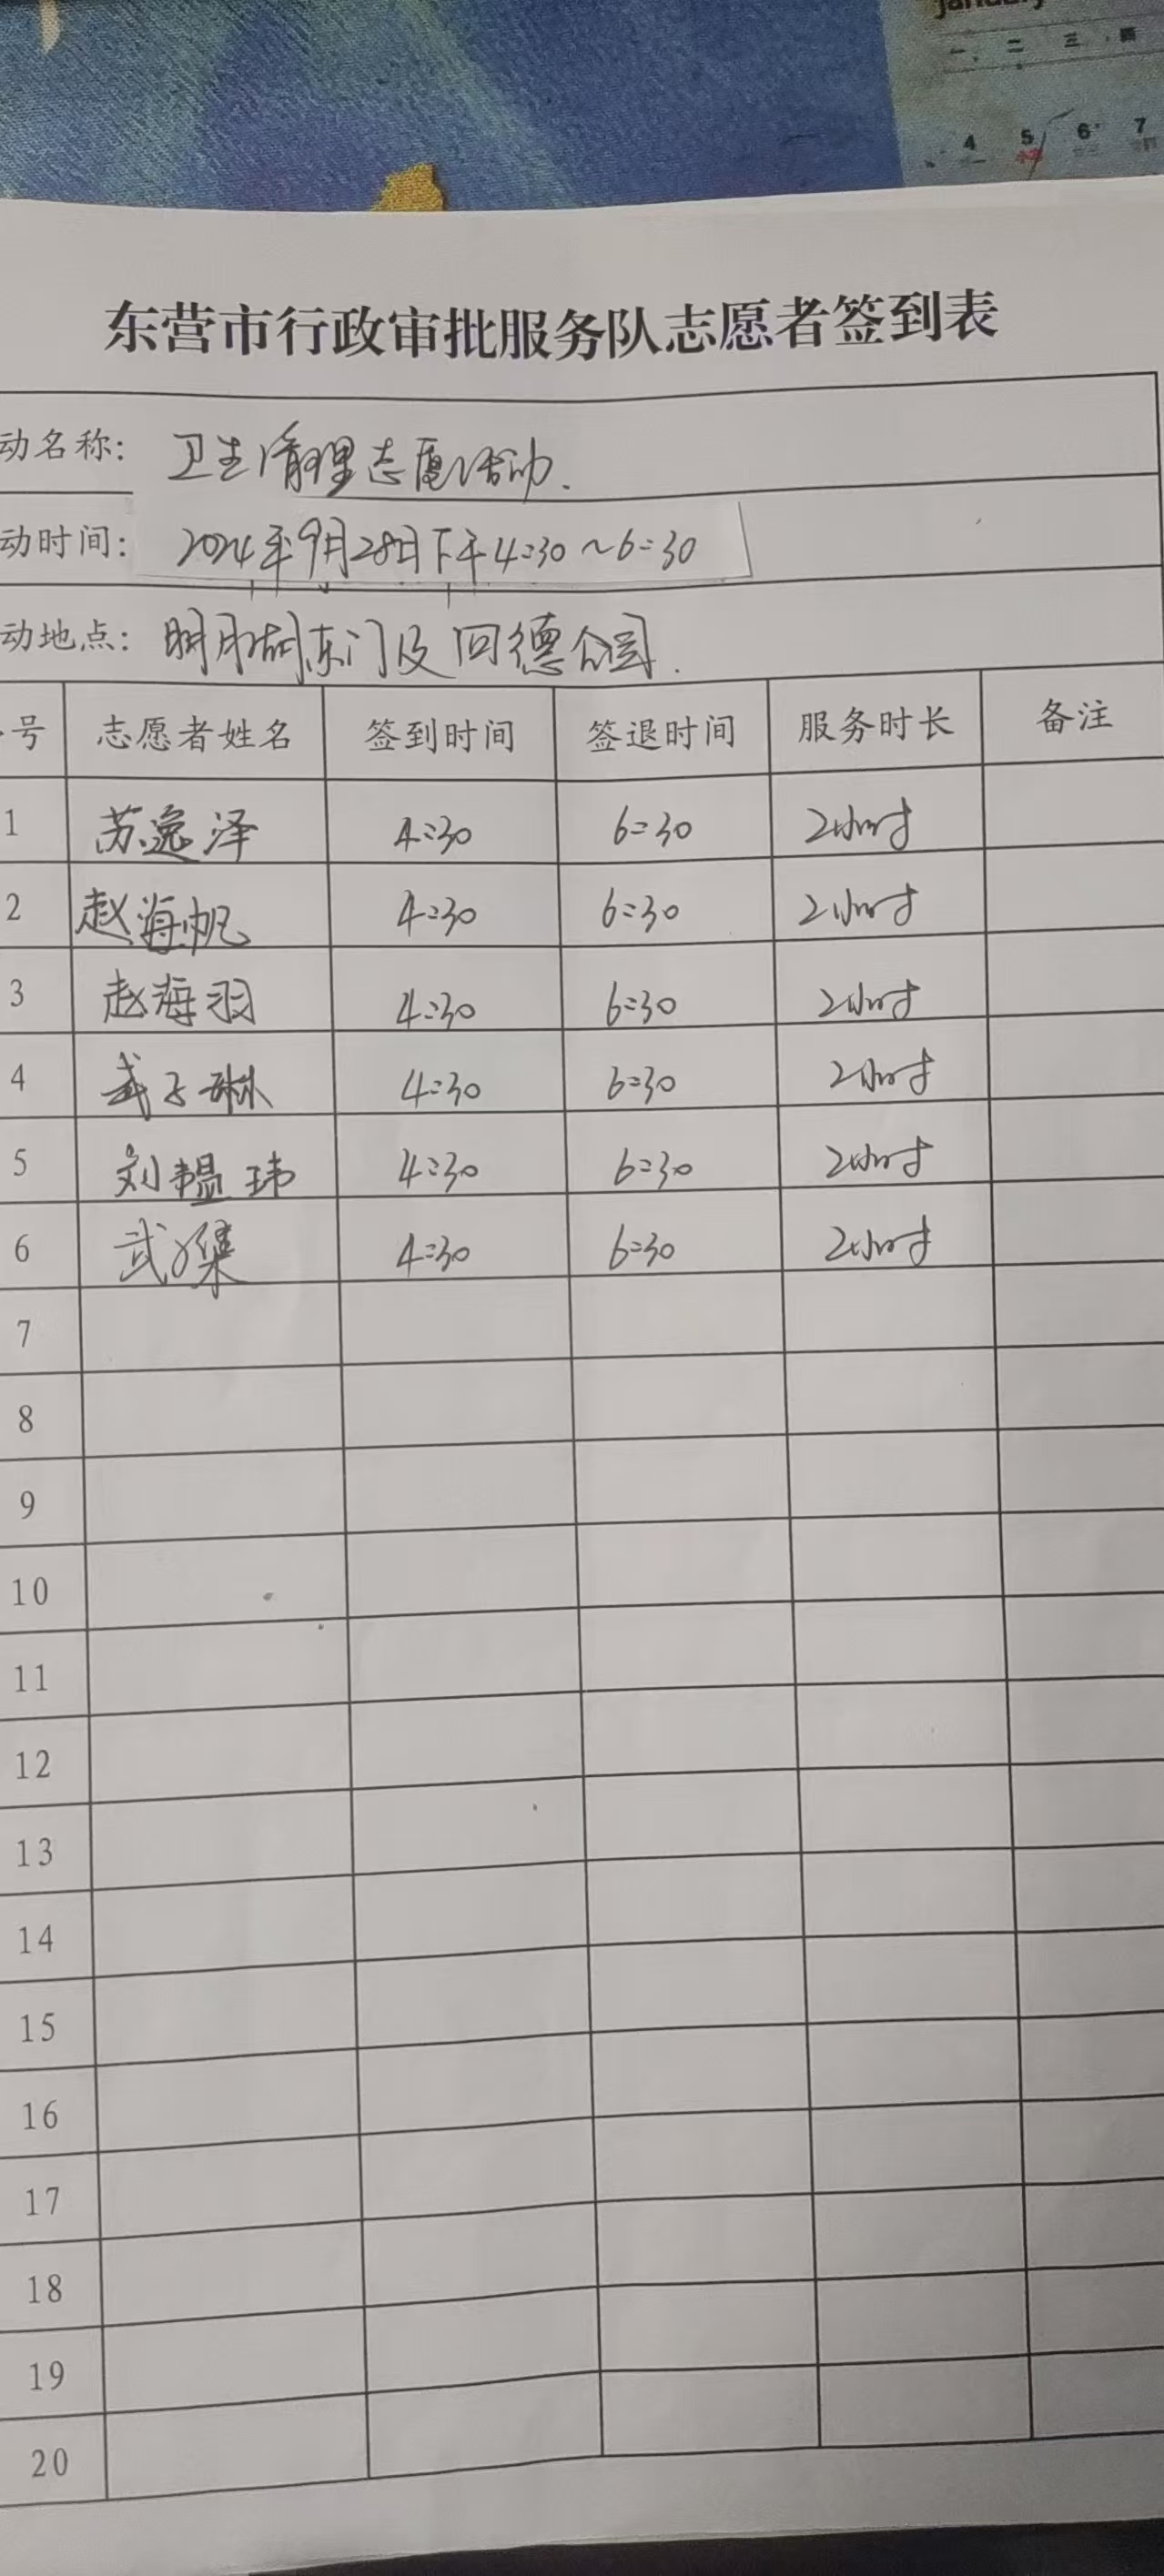 一 二 三 四
4 5 6 7
东营市行政审批服务队志愿者签到表
动名称: 卫生清理志愿活动.
动时间: 2024年9月28日下午4:30~6:30
动地点: 明月湖东门及 回德公园.
号 志愿者姓名 签到时间 签退时间 服务时长 备注
1 苏逸泽 4:30 6:30 2小时
2 赵海帆 4:30 6:30 2小时
3 赵海羽 4:30 6:30 2小时
4 武子琳 4:30 6:30 2小时
5 刘韫玮 4:30 6:30 2小时
6 武 4:30 6:30 2小时
7
8
9
10
11
12
13
14
15
16
17
18
19
20